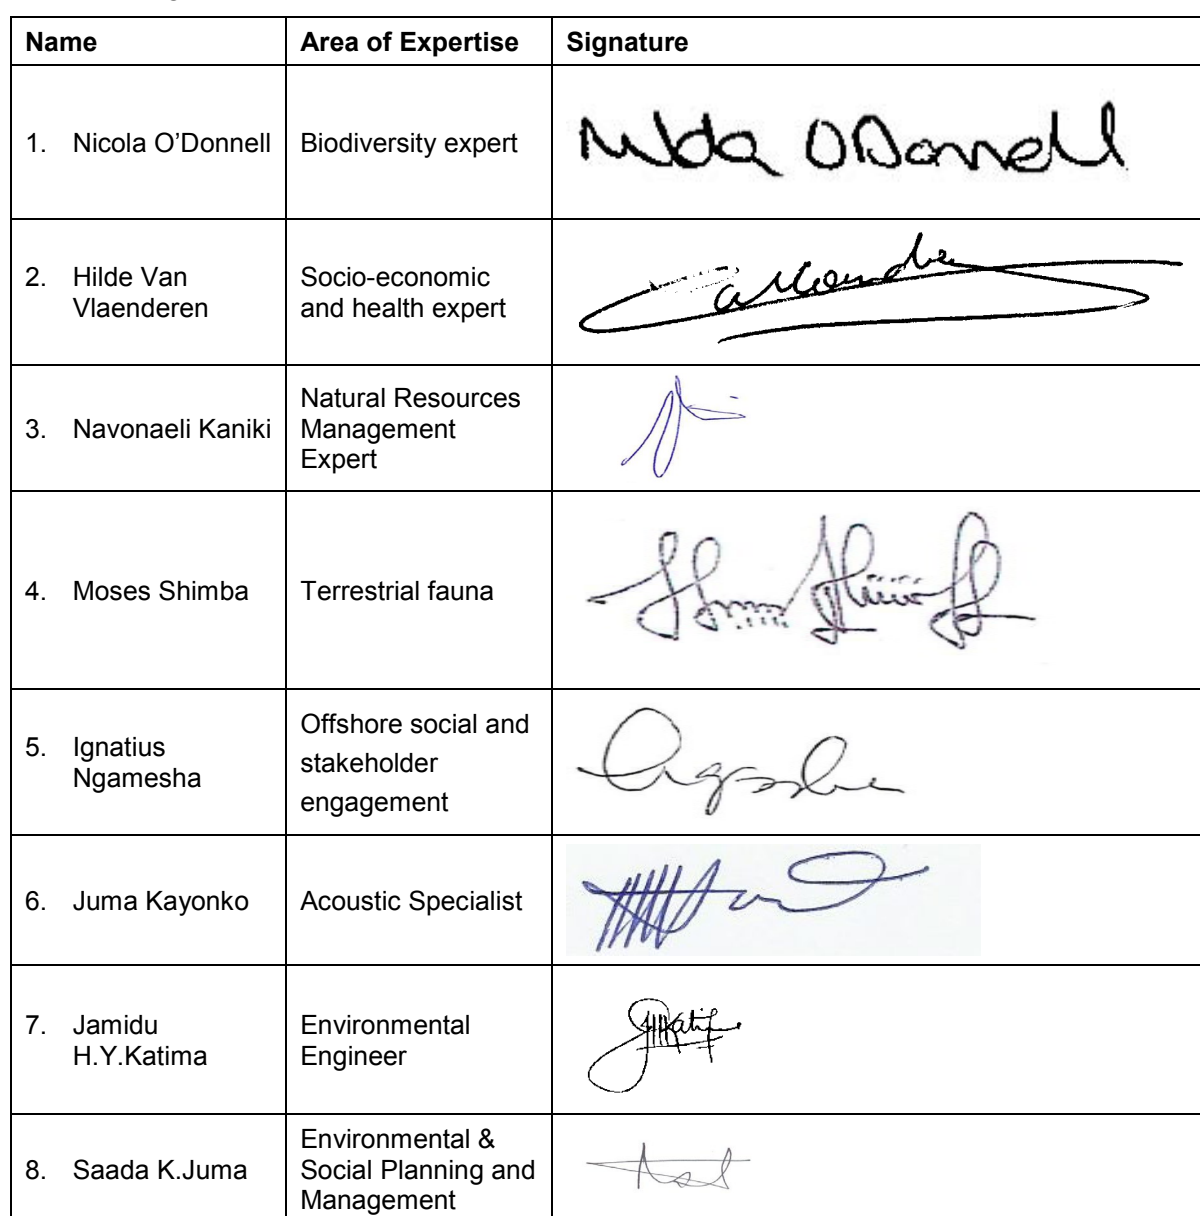 Name Area of Expertise Signature
1. Nicola O’Donnell Biodiversity expert
O'Donnell
2. Hilde Van
Vlaenderen
Socio-economic
and health expert
3. Navonaeli Kaniki
Natural Resources
Management
Expert
4. Moses Shimba Terrestrial fauna
5. Ignatius
Ngamesha
Offshore social and
stakeholder
engagement
6. Juma Kayonko Acoustic Specialist
7. Jamidu
H.Y.Katima
Environmental
Engineer
8. Saada K.Juma
Environmental &
Social Planning and
Management